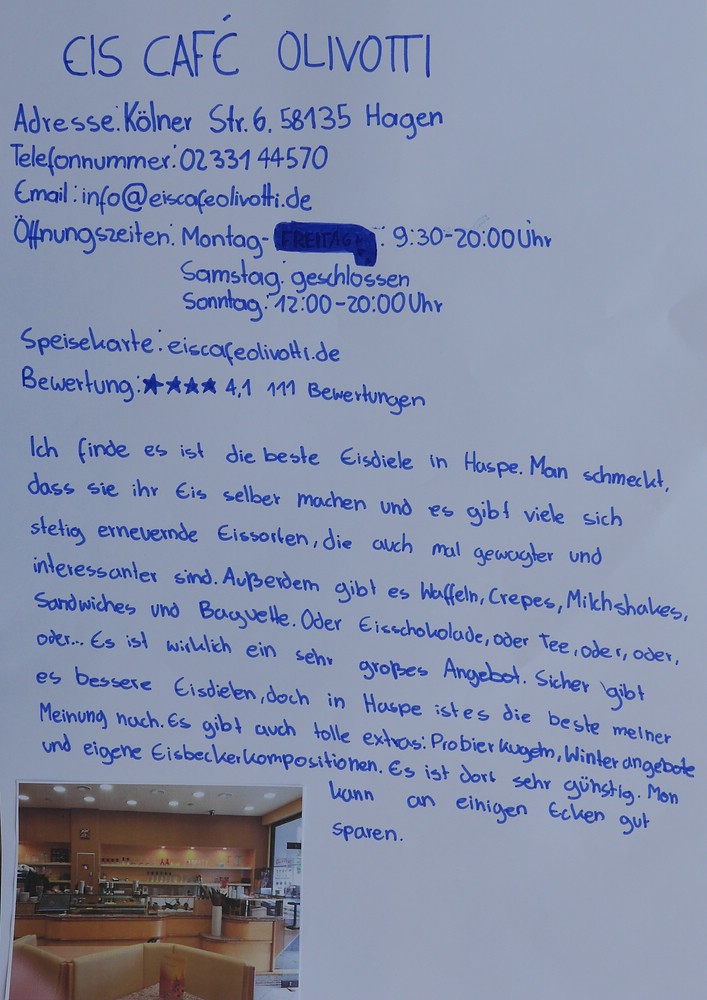 EIS CAFÉ OLIVOTTI
Adresse: Kölner Str. 6, 58135 Hagen
Telefonnummer: 02331 44570
Email: info@eiscafeolivotti.de
Öffnungszeiten: Montag- FREITAG: 9:30-20:00 Uhr
Samstag: geschlossen
Sonntag: 12:00-20:00 Uhr
Speisekarte: eiscafeolivotti.de
Bewertung: ★★★★ 4,1 111 Bewertungen
Ich finde es ist die beste Eisdiele in Haspe. Man schmeckt,
dass sie ihr Eis selber machen und es gibt viele sich
stetig erneuernde Eissorten, die auch mal gewagter und
interessanter sind. Außerdem gibt es Waffeln, Crepes, Milchshakes,
Sandwiches und Baguette. Oder Eisschokolade, oder Tee, oder, oder,
oder... Es ist wirklich ein sehr großes Angebot. Sicher gibt
es bessere Eisdielen, doch in Haspe ist es die beste meiner
Meinung nach. Es gibt auch tolle extras: Probier Kugeln, Winterangebote
und eigene Eisbecherkompositionen. Es ist dort sehr günstig. Man
kann an einigen Ecken gut
sparen.